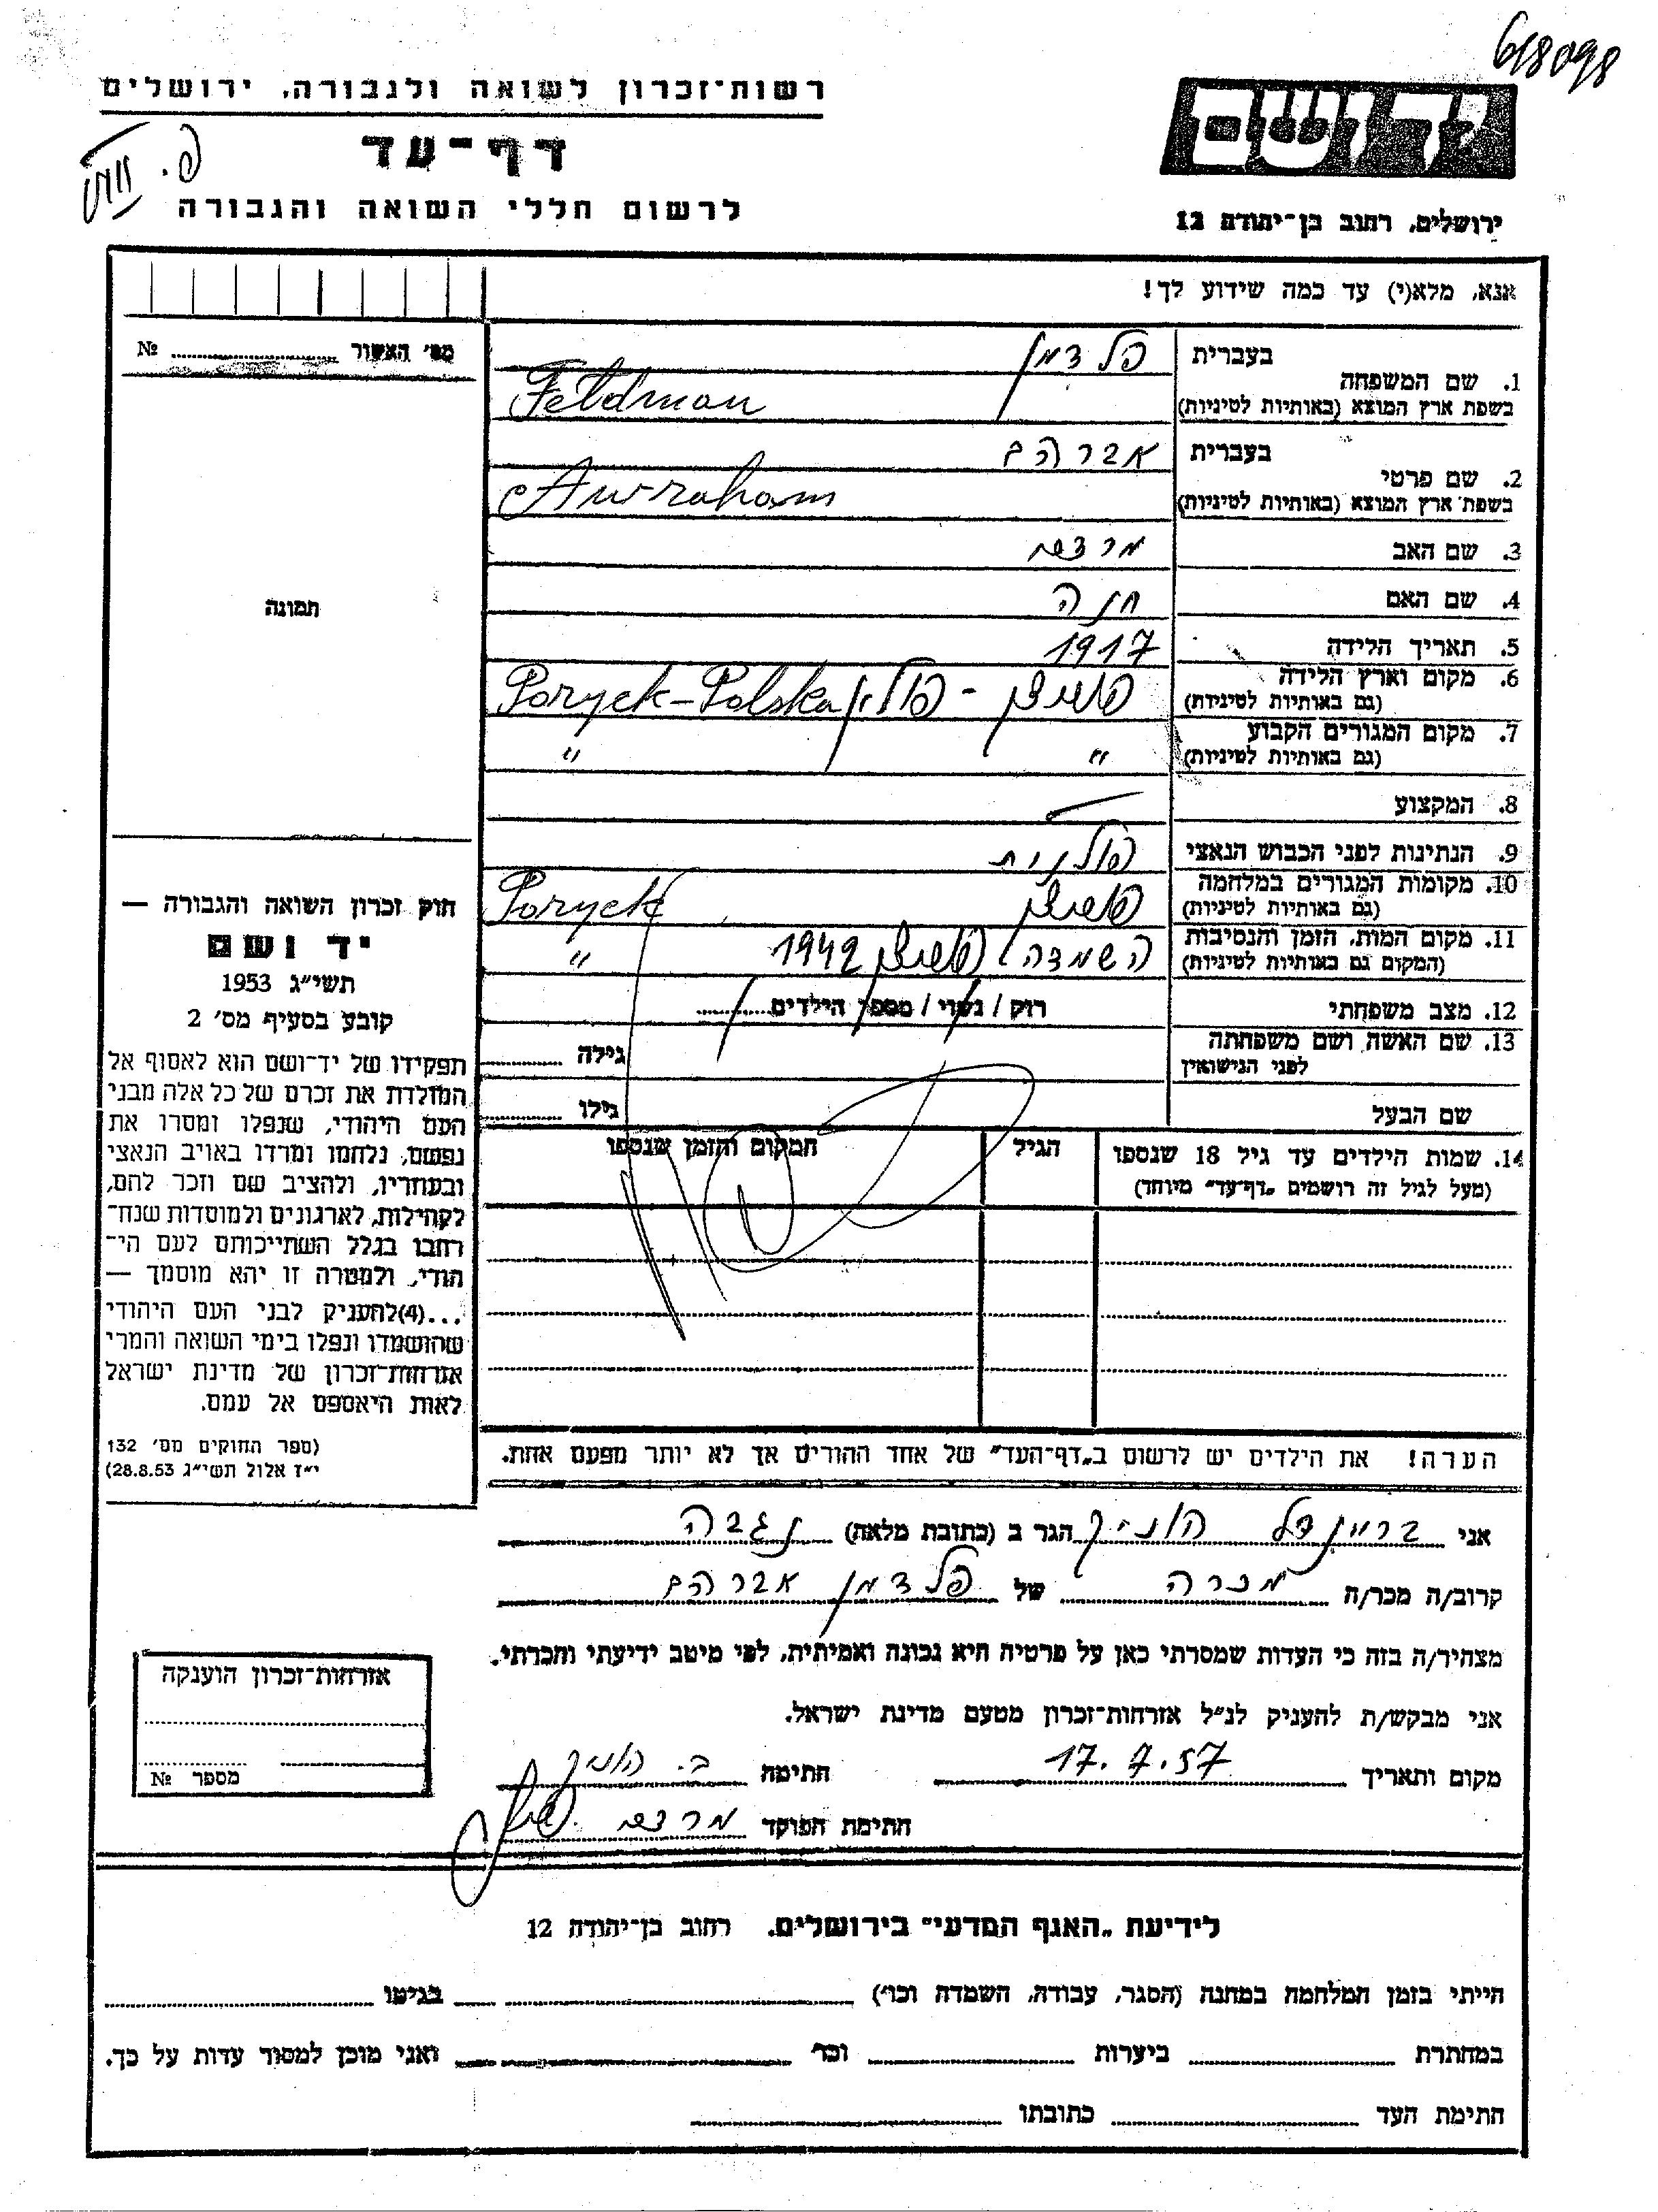 618098
רשות־זכרון לשואה ולגבורה, ירושלים
דף־עד
לרשום חללי השואה והגבורה
יד ושם
ירושלים, רחוב בן־יהודה 12
אנא, מלא(י) עד כמה שידוע לך!
מס׳ האשור № ........
1. שם המשפחה בעברית פלדמן
בשפת ארץ המוצא (באותיות לטיניות) Feldman
2. שם פרטי בעברית אברהם
בשפת ארץ המוצא (באותיות לטיניות) Awraham
3. שם האב מרדכי
4. שם האם חנה
5. תאריך הלידה 1917
6. מקום וארץ הלידה (גם באותיות לטיניות) פוריצק - פולין Poryck-Polska
7. מקום המגורים הקבוע (גם באותיות לטיניות) " "
8. המקצוע
9. הנתינות לפני הכבוש הנאצי פולנית
10. מקומות המגורים במלחמה (גם באותיות לטיניות) פוריצק Poryck
11. מקום המות, הזמן והנסיבות (המקום גם באותיות לטיניות) השמדה, פוריצק 1942 "
12. מצב משפחתי רוק / נשוי / מספר הילדים ........
13. שם האשה ושם משפחתה לפני הנישואין גילה ........
שם הבעל גילו ........
14. שמות הילדים עד גיל 18 שנספו הגיל המקום והזמן שנספו
(מעל לגיל זה רושמים „דף־עד" מיוחד)
הערה! את הילדים יש לרשום ב„דף־העד" של אחד ההורים אך לא יותר מפעם אחת.
תמונה
חוק זכרון השואה והגבורה —
יד ושם
תשי"ג 1953
קובע בסעיף מס׳ 2
תפקידו של יד־ושם הוא לאסוף אל
המולדת את זכרם של כל אלה מבני
העם היהודי, שנפלו ומסרו את
נפשם, נלחמו ומרדו באויב הנאצי
ובעוזריו, ולהציב שם וזכר להם,
לקהילות, לארגונים ולמוסדות שנח־
רבו בגלל השתייכותם לעם הי־
הודי, ולמטרה זו יהא מוסמך —
...(4)להעניק לבני העם היהודי
שהושמדו ונפלו בימי השואה והמרי
אזרחות־זכרון של מדינת ישראל
לאות היאספם אל עמם.
(ספר החוקים מס׳ 132
י"ז אלול תשי"ג 28.8.53)
אני בריינדל הוניק הגר ב (כתובת מלאה) נגבה
קרוב/ה מכר/ה מכרה של פלדמן אברהם
מצהיר/ה בזה כי העדות שמסרתי כאן על פרטיה היא נכונה ואמיתית, לפי מיטב ידיעתי והכרתי.
אני מבקש/ת להעניק לנ"ל אזרחות־זכרון מטעם מדינת ישראל.
מקום ותאריך 17.7.57 חתימה ב. הוניק
חתימת הפוקד מרדכי
אזרחות־זכרון הוענקה
מספר №
לידיעת „האגף המדעי" בירושלים, רחוב בן־יהודה 12
הייתי בזמן המלחמה במחנה (הסגר, עבודה, השמדה וכו׳) ........ בגיטו ........
במחתרת ........ ביערות ........ וכו׳ ........ ואני מוכן למסור עדות על כך.
חתימת העד ........ כתובתו ........